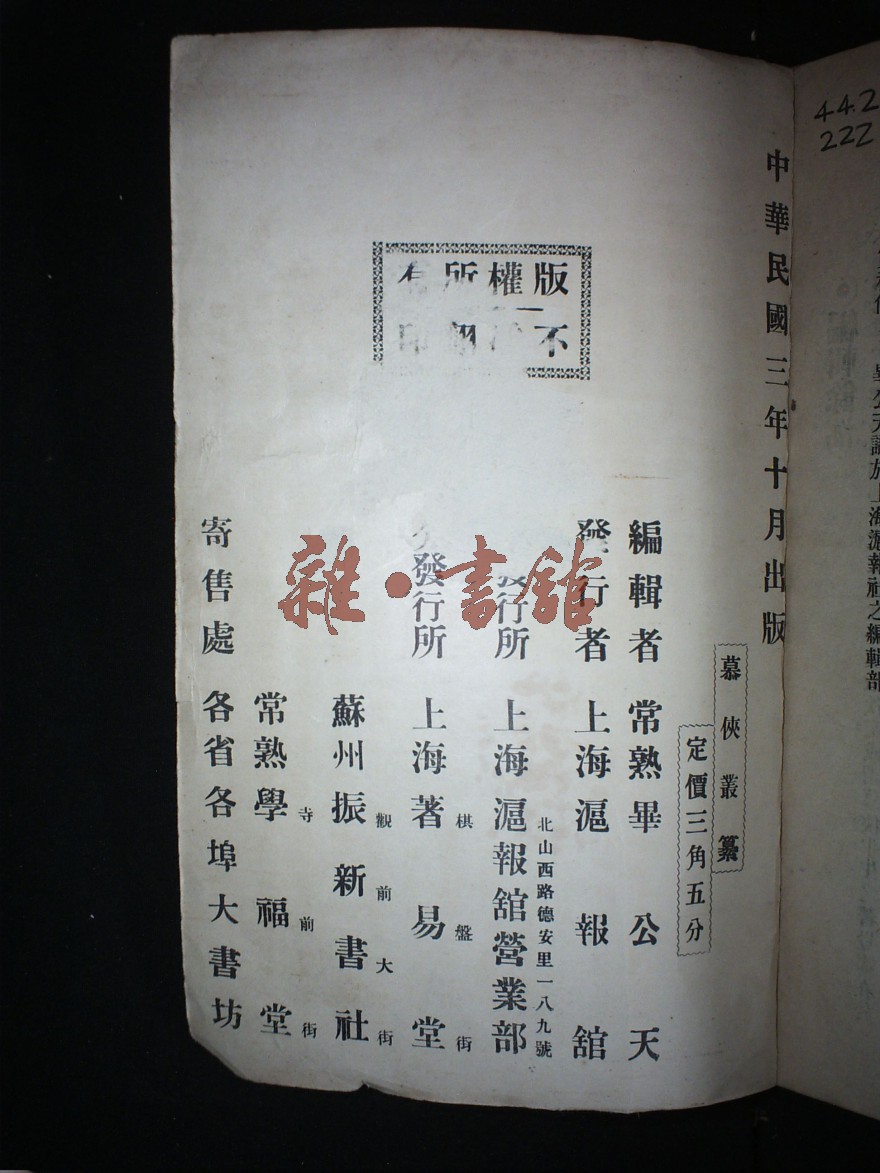 442
222
中華民國三年十月出版
版權所有
不
慕俠叢纂
定價三角五分
編輯者 常熟畢公天
發行者 上海滬報舘
發行所 上海滬報舘營業部
北山西路德安里一八九號
發行所 上海著易堂
棋盤街
蘇州振新書社
觀前大街
常熟學福堂
寺前街
寄售處 各省各埠大書坊
雜·書舘
上海滬報社之編輯部